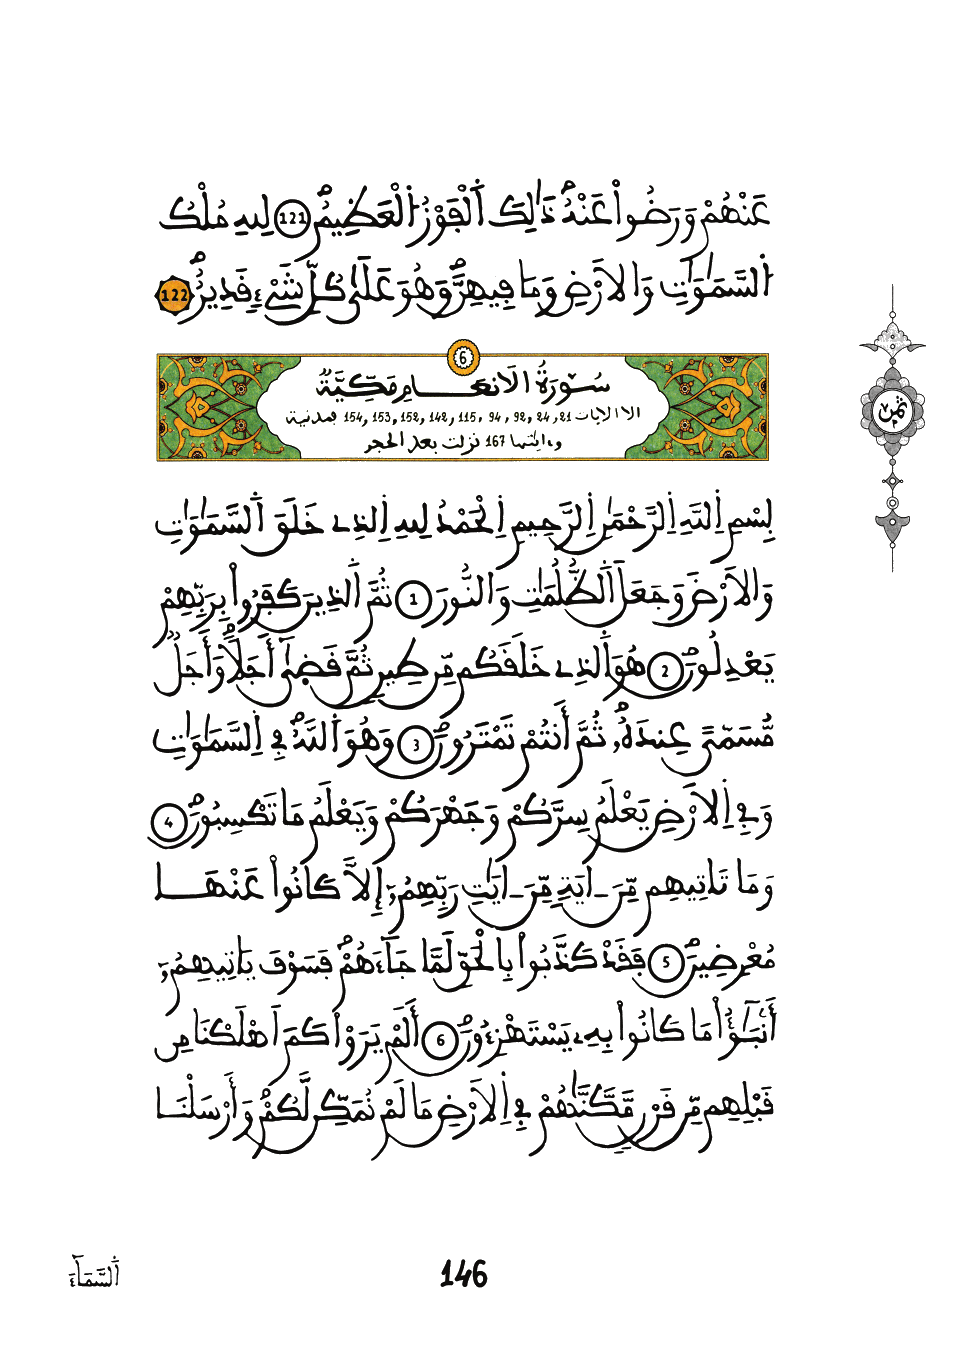 عَنْهُمْ وَرَضُواْ عَنْهُ ذَٰلِكَ اَ۬لْفَوْزُ اُ۬لْعَظِيمُ 121 لِلهِ مُلْكُ
اُ۬لسَّمَٰوَٰتِ وَالَارْضِ وَمَا فِيهِنَّ وَهُوَ عَلَىٰ كُلِّ شَےْءٖ قَدِيرٌ 122
6
سُورَةُ الَانعَامِ مَكِّيَّةٌ
الا الايات 21, 24, 92, 94, 115, 142, 152, 153, 154 فمدنية
وءايتها 167 نزلت بعد الحجر
ثمن
بِسْمِ اِ۬للَّهِ اِ۬لرَّحْمَٰنِ اِ۬لرَّحِيمِ اِ۬لْحَمْدُ لِلهِ اِ۬لذِے خَلَقَ اَ۬لسَّمَٰوَٰتِ
وَالَارْضَ وَجَعَلَ اَ۬لظُّلُمَٰتِ وَالنُّورَ 1 ثُمَّ اَ۬لذِينَ كَفَرُواْ بِرَبِّهِمْ
يَعْدِلُونَ 2 هُوَ اَ۬لذِے خَلَقَكُم مِّن طِينٖ ثُمَّ قَضَىٰٓ أَجَلاٗ وَأَجَلٞ
مُّسَمّيً عِندَهُۥ ثُمَّ أَنتُمْ تَمْتَرُونَ 3 وَهُوَ اَ۬للَّهُ فِے اِ۬لسَّمَٰوَٰتِ
وَفِے اِ۬لَارْضِ يَعْلَمُ سِرَّكُمْ وَجَهْرَكُمْ وَيَعْلَمُ مَا تَكْسِبُونَ 4
وَمَا تَاتِيهِم مِّنَ ـ ايَةٖ مِّنَ ـ ايَٰتِ رَبِّهِمُۥٓ إِلَّا كَانُواْ عَنْهَا
مُعْرِضِينَ 5 فَقَدْ كَذَّبُواْ بِالْحَقِّ لَمَّا جَآءَهُمْ فَسَوْفَ يَاتِيهِمُۥٓ
أَنۢبَٰٓؤُاْ مَا كَانُواْ بِهِۦ يَسْتَهْزِءُونَ 6 أَلَمْ يَرَوَاْ كَمَ اَهْلَكْنَا مِن
قَبْلِهِم مِّن قَرْنٖ مَّكَّنَّٰهُمْ فِے اِ۬لَارْضِ مَا لَمْ نُمَكِّن لَّكُمْ وَأَرْسَلْنَا
146
اَ۬لسَّمَآءَ